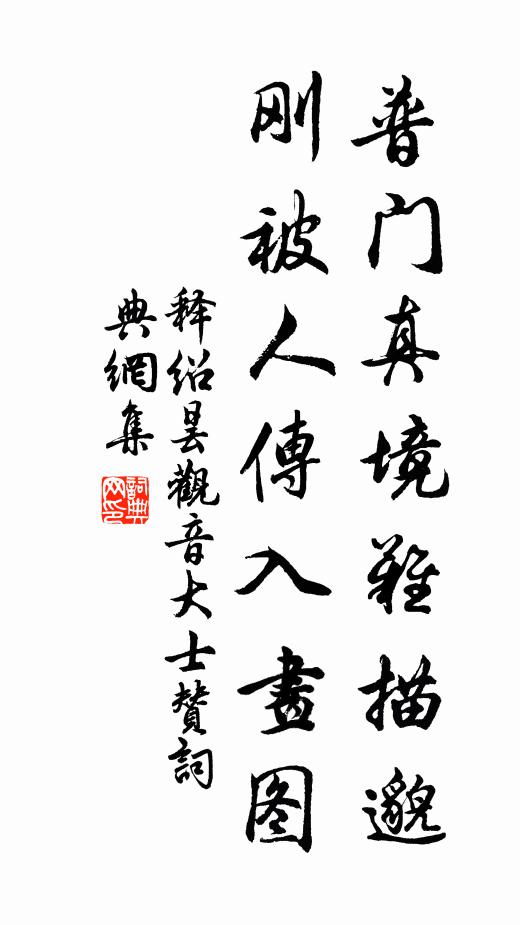 普门真境難描邈
刚被人傳入畫图
释绍昙觀音大士赞詞
典網集
詞典网印